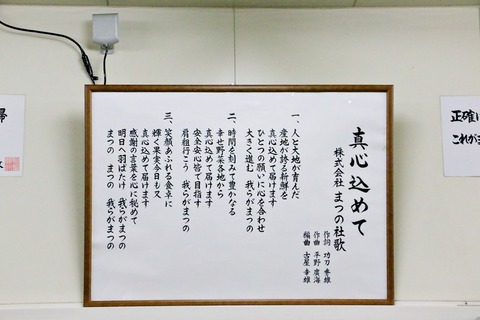 真心込めて
株式会社 まつの社歌
作詞 功刀 秀雄
作曲 平野 廣海
編曲 古屋 幸雄
一、人と大地が育んだ
産地が誇る新鮮を
真心込めて届けます
ひとつの願いに心を合わせ
大きく進む 我らがまつの
二、時間を刻みて豊かなる
幸せ野菜各地から
真心込めて届けます
安全安心皆で目指す
肩組み行こう 我らがまつの
三、笑顔あふれる食卓に
輝く果実今日も又
真心込めて届けます
感謝の言葉を心に秘めて
明日へ羽ばたけ 我らがまつの
まつの まつの 我らがまつの
正確に
これが